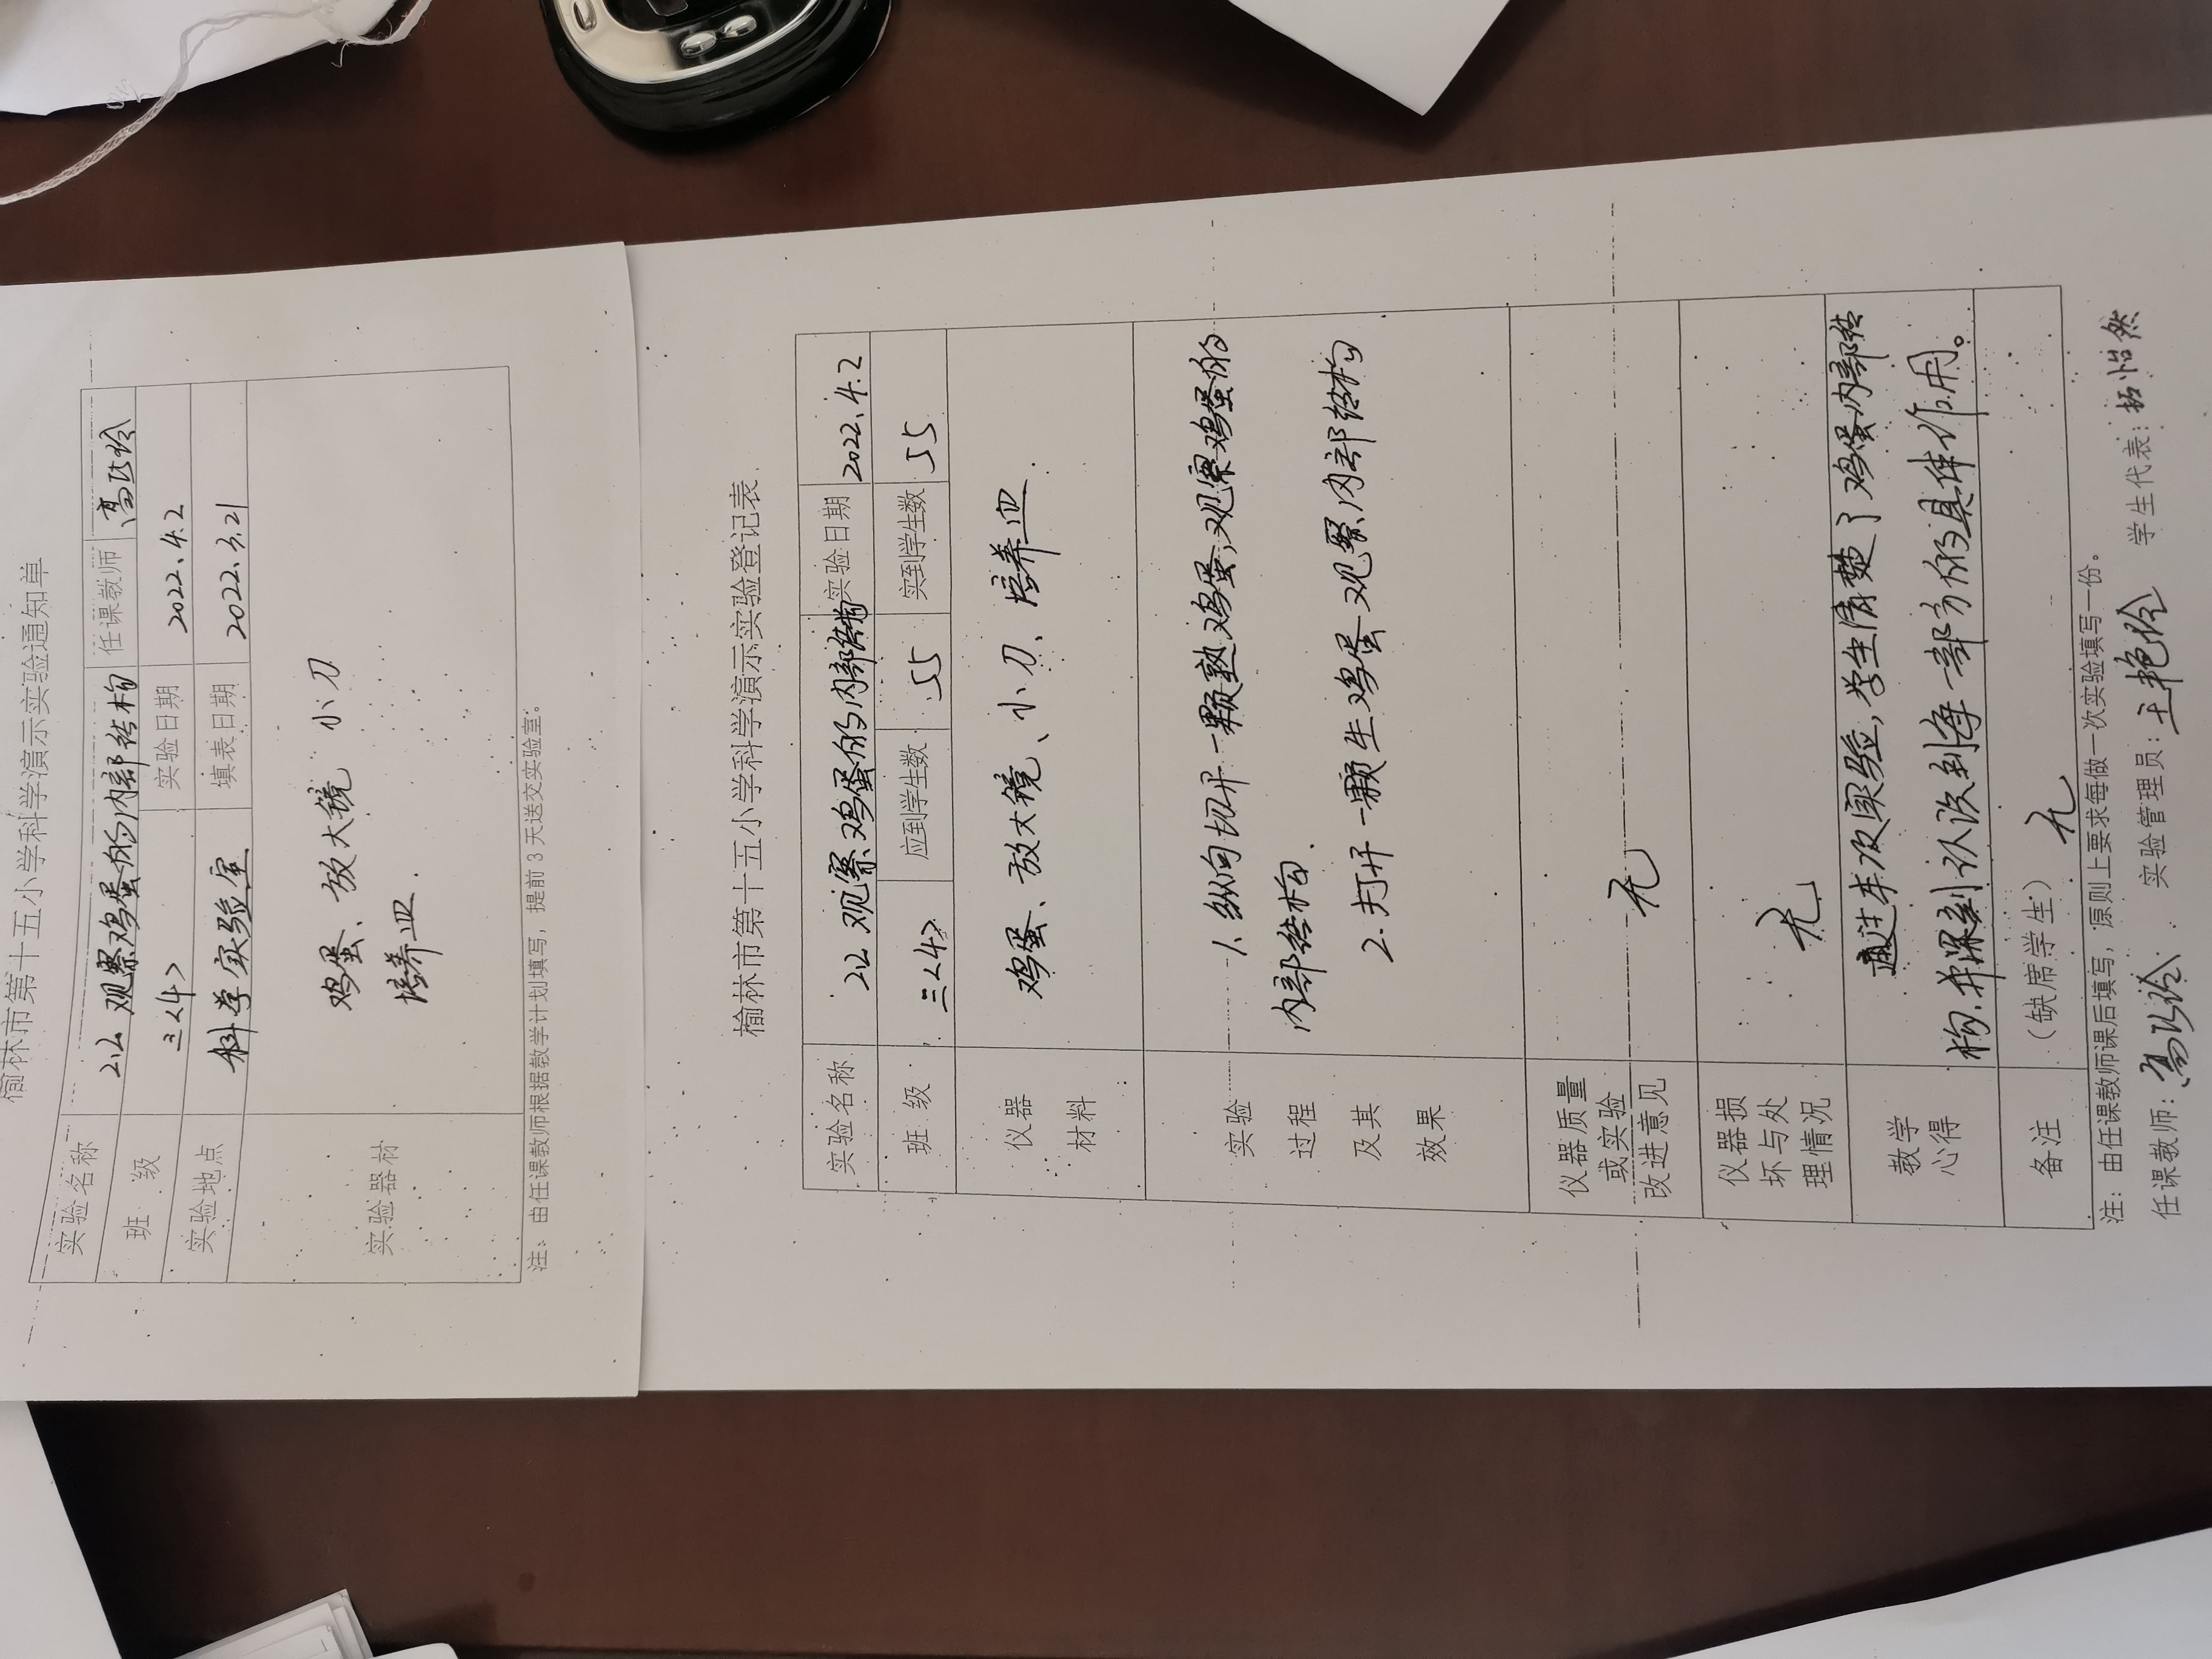 榆林市第十五小学科学演示实验通知单
实验名称 2.2 观察鸡蛋的内部结构 任课教师
班 级 三<4> 实验日期 2022.4.2
实验地点 科学实验室 填表日期 2022.3.21
实验器材 鸡蛋、放大镜 小刀
培养皿.
注：由任课教师根据教学计划填写，提前3天送交实验室。
榆林市第十五小学科学演示实验登记表
实验名称 2.2 观察鸡蛋的内部结构 实验日期 2022.4.2
班 级 三<4> 应到学生数 55 实到学生数 55
仪器
材料
鸡蛋、放大镜、小刀、培养皿.
实验
过程
及其
效果
1.纵向切开一颗熟鸡蛋,观察鸡蛋的
内部结构.
2.打开一颗生鸡蛋观察内部结构
仪器质量
或实验
改进意见
无
仪器损
坏与处
理情况
无
教学
心得
通过本次实验,学生清楚了鸡蛋内部结
构.并深刻认识到每一部分的具体作用。
备注 （缺席学生） 无
注：由任课教师课后填写，原则上要求每做一次实验填写一份。
任课教师： 实验管理员：王艳玲 学生代表：拓怡然